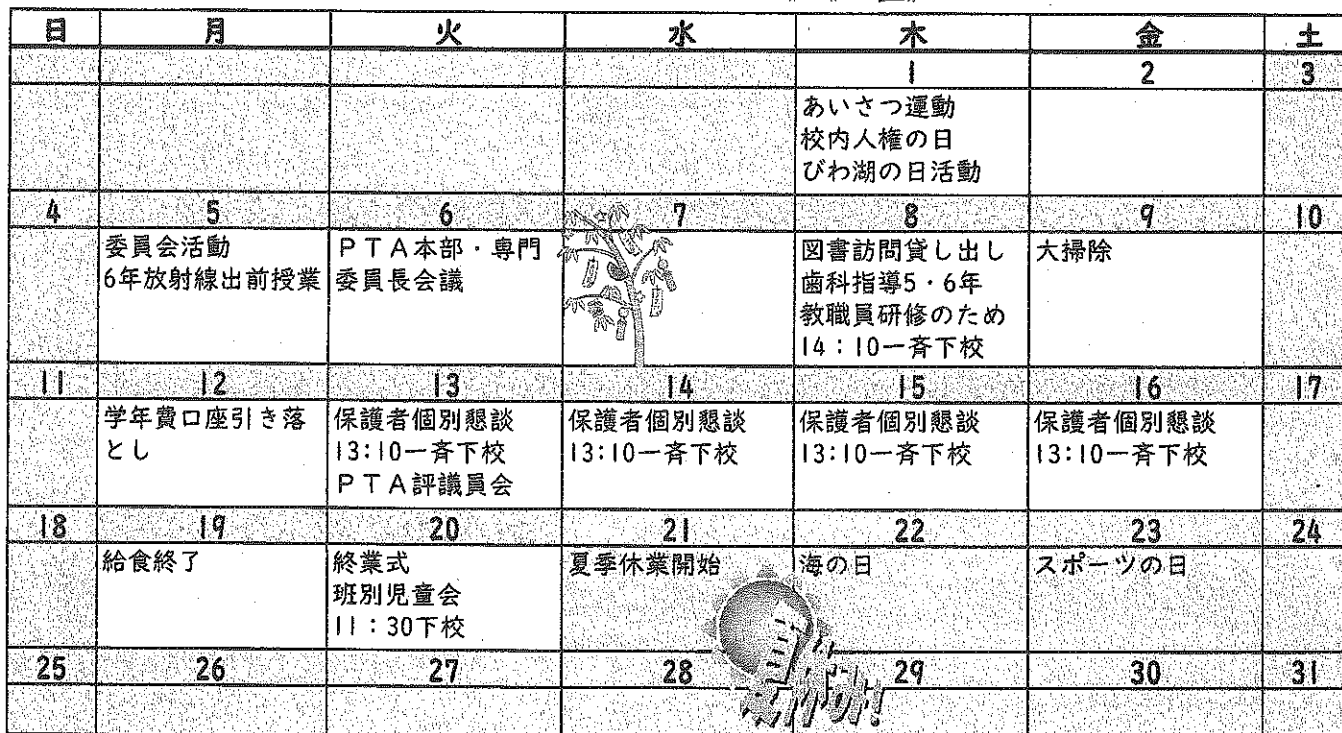 日 月 火 水 木 金 土
1 2 3
あいさつ運動
校内人権の日
びわ湖の日活動
4 5 6 7 8 9 10
委員会活動
6年放射線出前授業
ＰＴＡ本部・専門
委員長会議
図書訪問貸し出し
歯科指導5・6年
教職員研修のため
14：10一斉下校
大掃除
11 12 13 14 15 16 17
学年費口座引き落
とし
保護者個別懇談
13:10一斉下校
ＰＴＡ評議員会
保護者個別懇談
13:10一斉下校
保護者個別懇談
13:10一斉下校
保護者個別懇談
13:10一斉下校
18 19 20 21 22 23 24
給食終了
終業式
班別児童会
11：30下校
夏季休業開始
海の日
スポーツの日
25 26 27 28 29 30 31